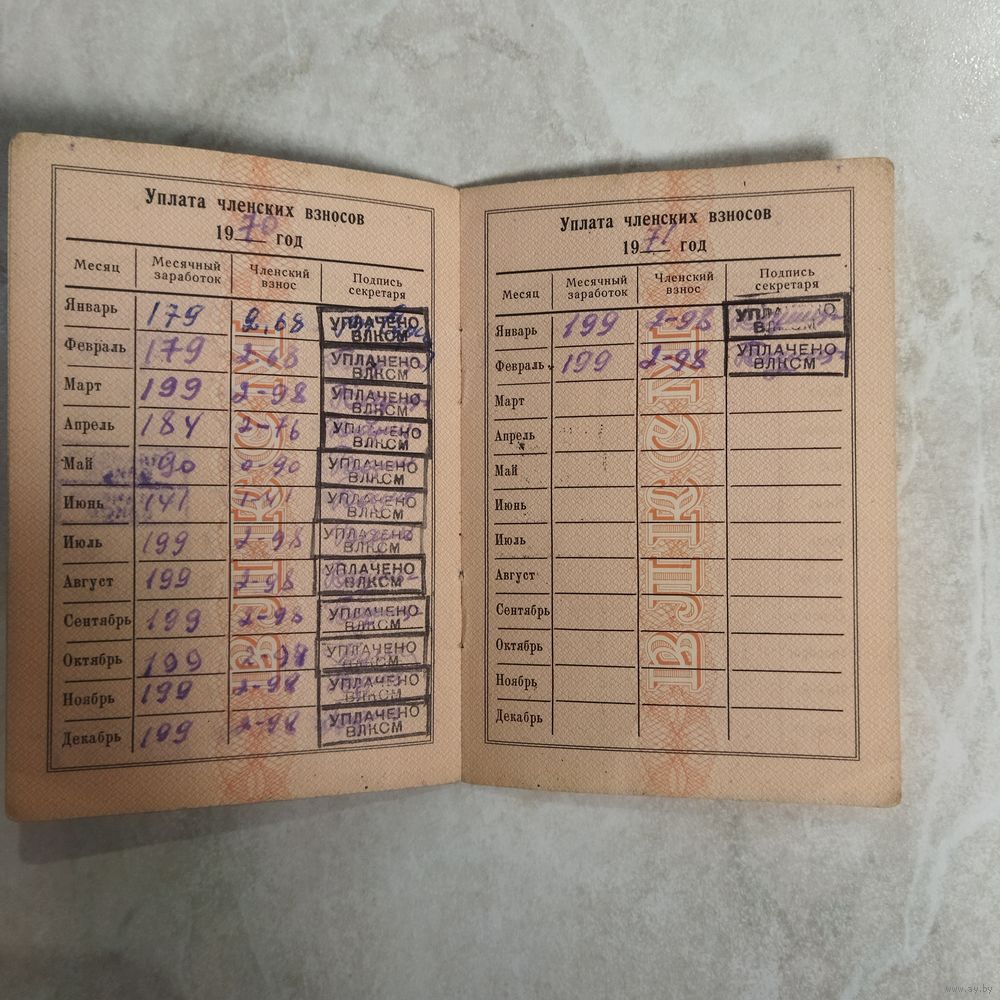 Уплата членских взносов
1970 год
Месяц Месячный заработок Членский взнос Подпись секретаря
Январь 179 2,68 УПЛАЧЕНО ВЛКСМ
Февраль 179 2-68 УПЛАЧЕНО ВЛКСМ
Март 199 2-98 УПЛАЧЕНО ВЛКСМ
Апрель 184 2-76 УПЛАЧЕНО ВЛКСМ
Май 90 0-90 УПЛАЧЕНО ВЛКСМ
Июнь 141 1-41 УПЛАЧЕНО ВЛКСМ
Июль 199 2-98 УПЛАЧЕНО ВЛКСМ
Август 199 2-98 УПЛАЧЕНО ВЛКСМ
Сентябрь 199 2-98 УПЛАЧЕНО ВЛКСМ
Октябрь 199 2-98 УПЛАЧЕНО ВЛКСМ
Ноябрь 199 2-98 УПЛАЧЕНО ВЛКСМ
Декабрь 199 2-98 УПЛАЧЕНО ВЛКСМ
ВЛКСМ
Уплата членских взносов
1971 год
Месяц Месячный заработок Членский взнос Подпись секретаря
Январь 199 2-98 УПЛАЧЕНО ВЛКСМ
Февраль 199 2-98 УПЛАЧЕНО ВЛКСМ
Март
Апрель
Май
Июнь
Июль
Август
Сентябрь
Октябрь
Ноябрь
Декабрь
ВЛКСМ
www.ay.by